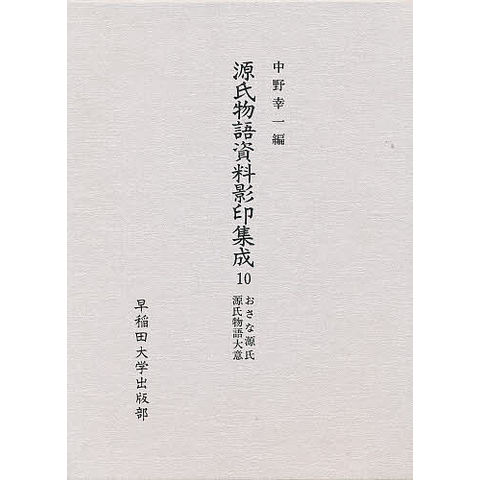 中野幸一編
源氏物語資料影印集成
10
おさな源氏
源氏物語大意
早稲田大学出版部